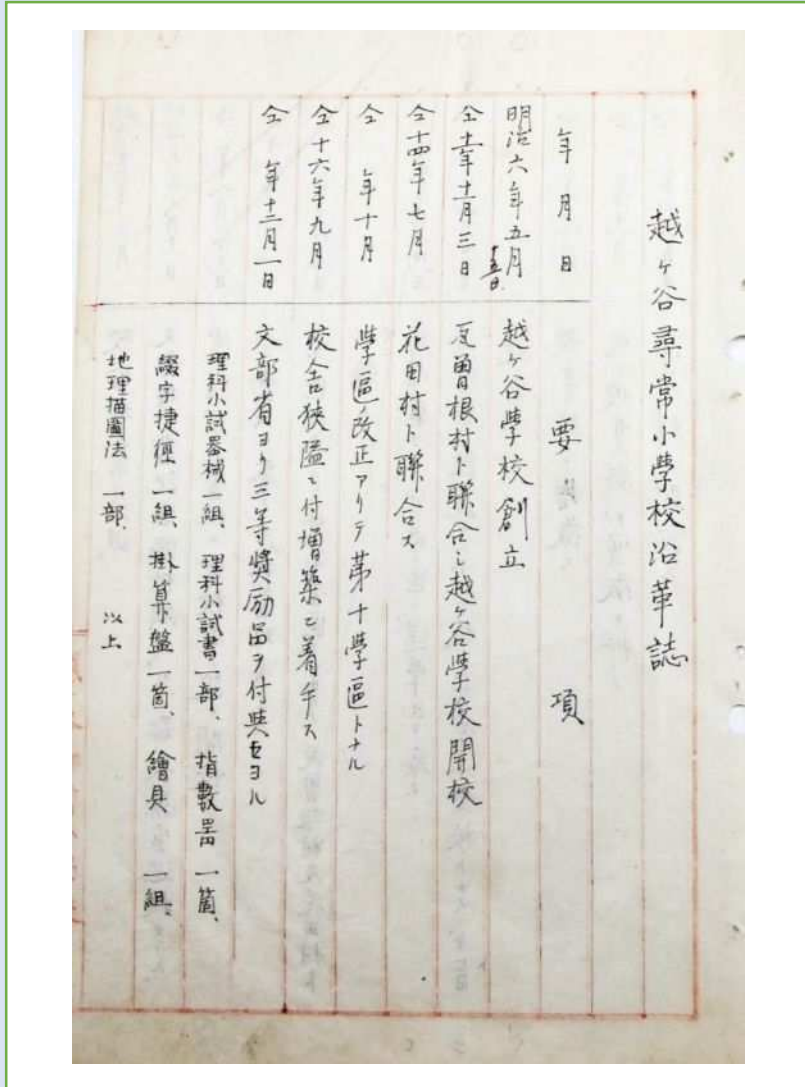 越ヶ谷尋常小學校沿革誌
年月日 要項
明治六年五月十五日 越ヶ谷學校創立
仝十二年十二月三日 瓦曽根村ト聯合シ越ヶ谷學校開校
仝十四年七月 花田村ト聯合ス
仝 年十月 學區改正アリテ第十學區トナル
仝十六年九月 校舎狭隘ニ付増築ニ着手ス
仝 年十二月一日 文部省ヨリ三等奬励品ヲ付與セヨル
理科小試器械一組、理科小試書一部、指數器一箇、
綴字捷徑一組、掛算盤一箇、繪具一組、
地理描圖法一部、 以上